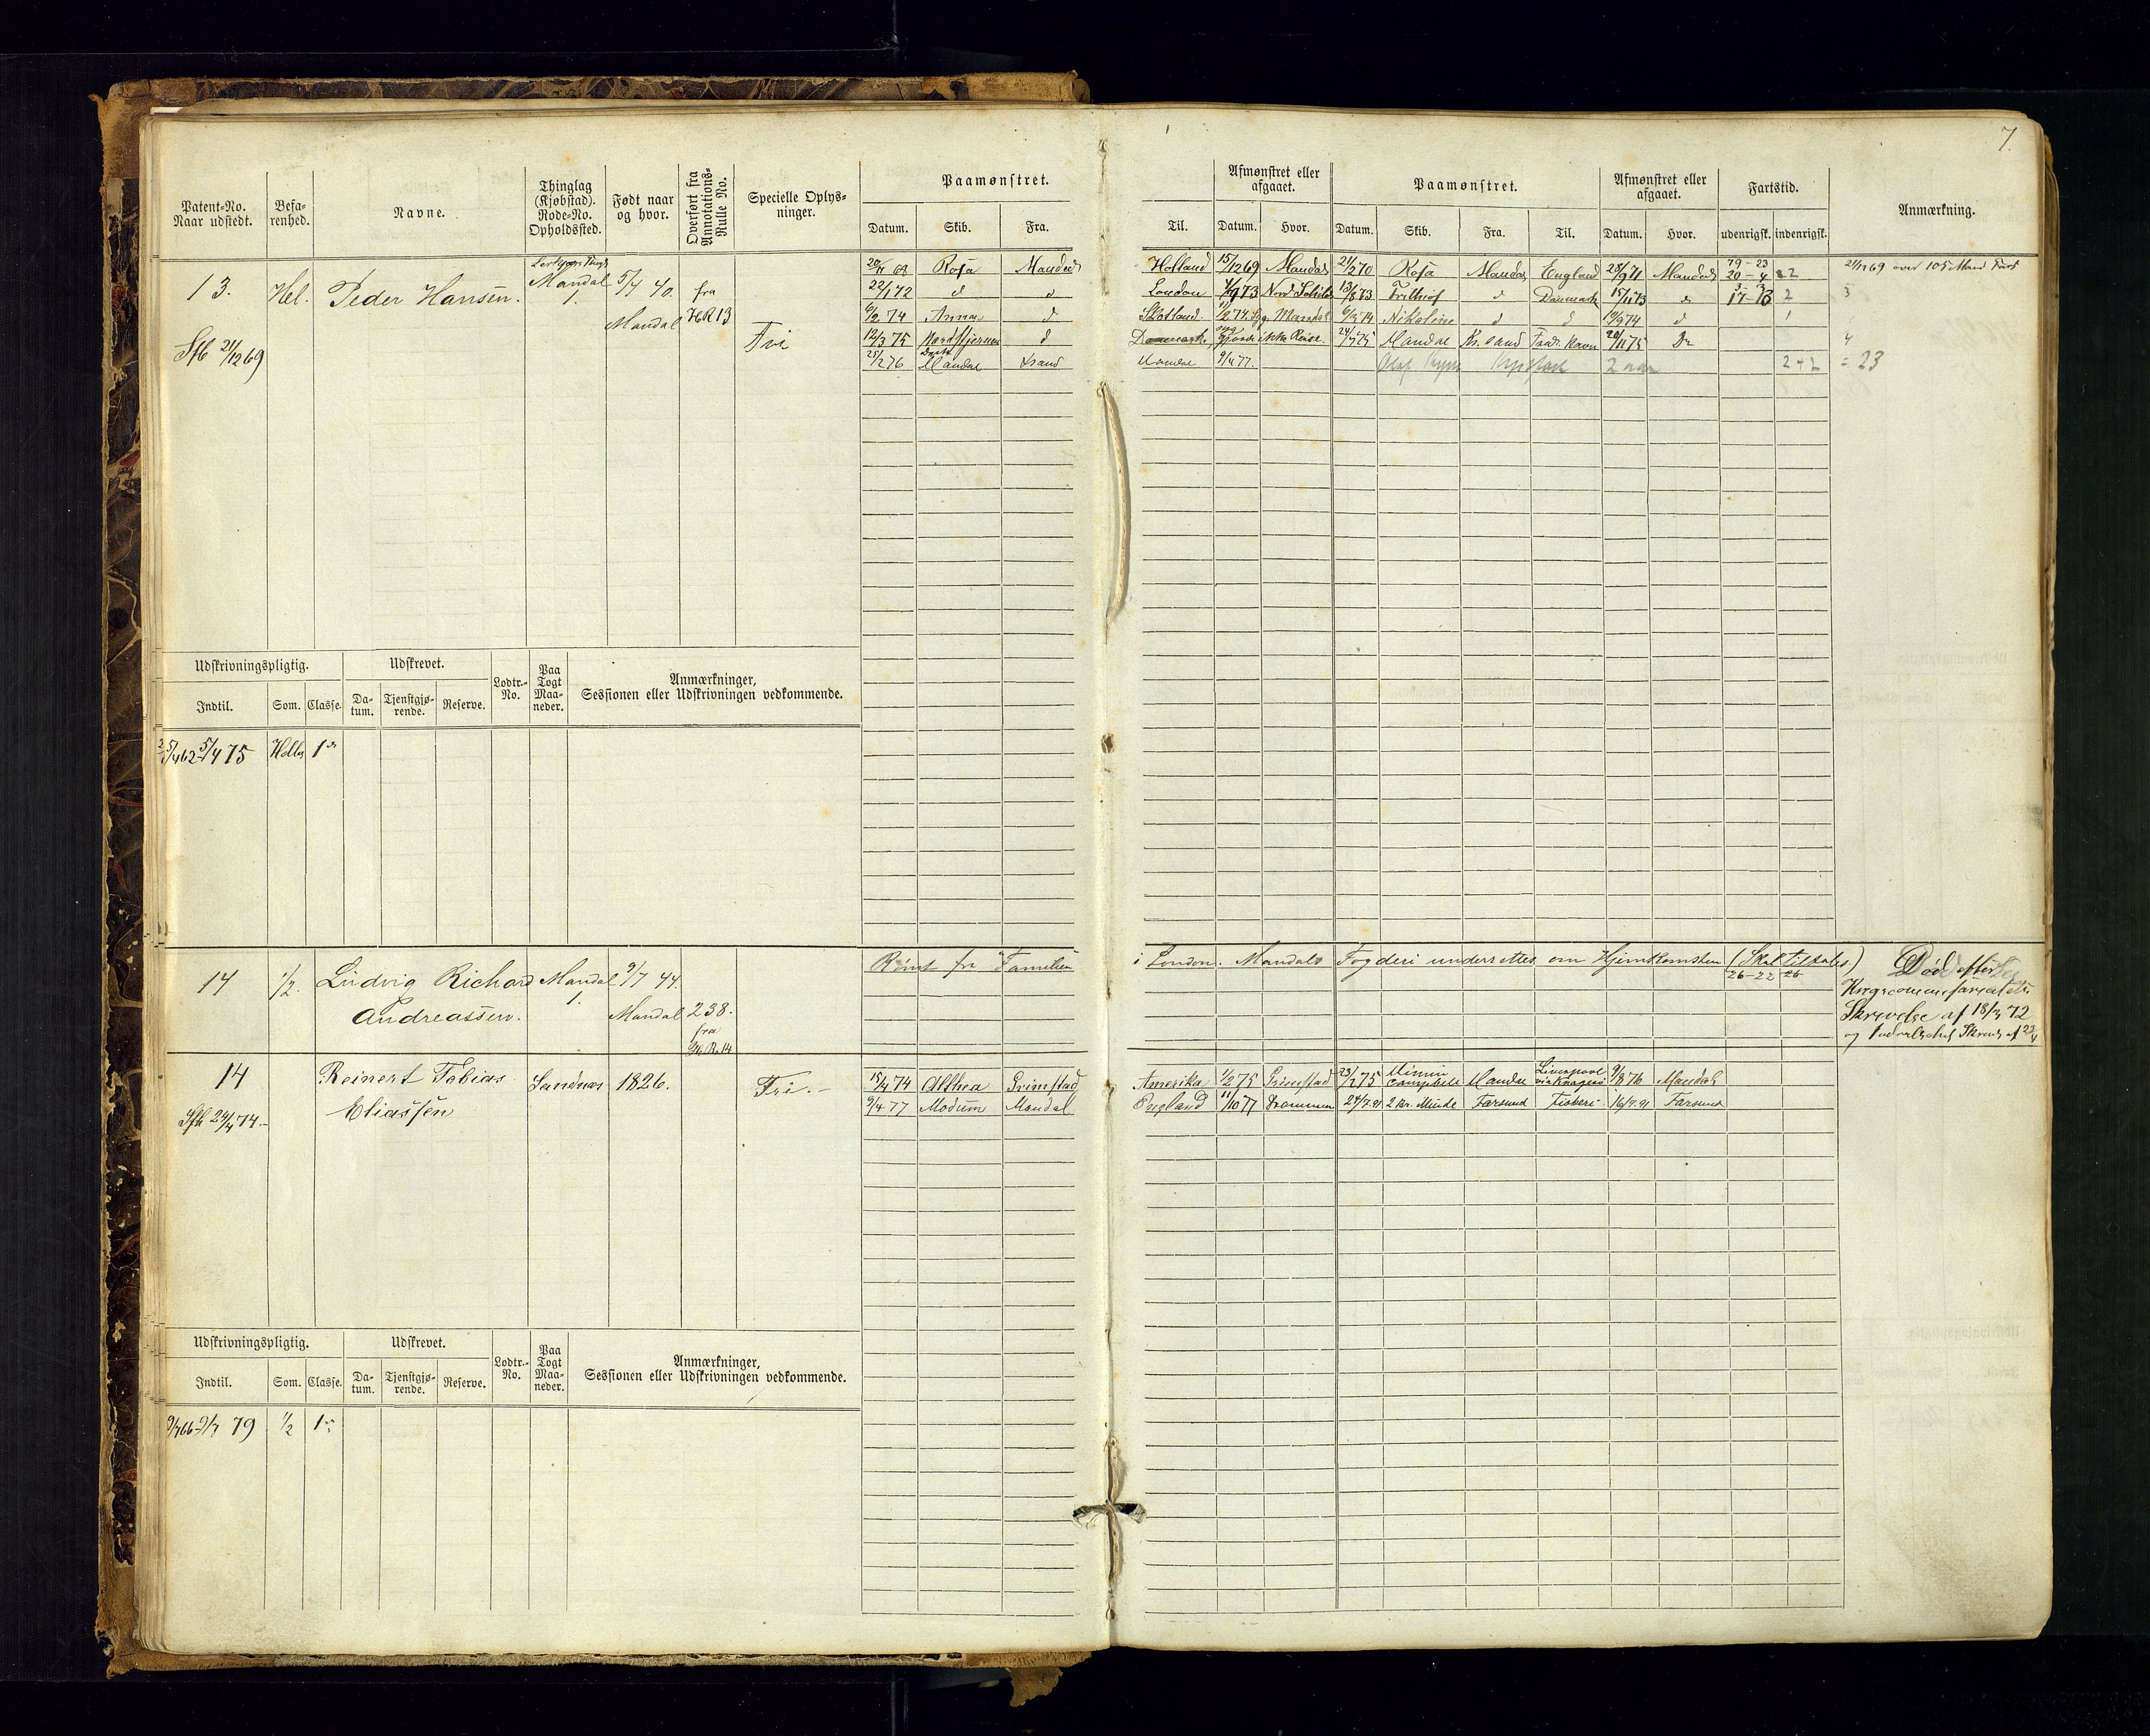 7.
Patent-No. Naar udstedt.
Befarenhed.
Navne.
Thinglag (Kjøbstad). Rode-No. Opholdssted.
Født naar og hvor.
Overført fra Annotations-Rulle No.
Specielle Oplysninger.
Paamønstret.
Datum. Skib. Fra.
Til.
Afmønstret eller afgaaet.
Datum. Hvor.
Paamønstret.
Datum. Skib. Fra. Til.
Afmønstret eller afgaaet.
Datum. Hvor.
Fartstid.
udenrigsk. indenrigsk.
Anmærkning.
13. Hel. Peder Hansen. Mandal 1. 5/4 40. Mandal fra HR 13 Fri
Sfb 21/12 69
Rosa Mandal Holland 15/12 69 Mandal 21/2 70 Rosa Mandal England 28/9 71 Mandal 20-4 2
22/1 72 d d London 73 Nord Schields 13/8 73 Frithiof d Danmark 15/11 73 d 2
74 Anna d Skotland 74 Mandal 74 Nikoline d d 19/9 74 d 1
12/3 75 Nordstjernen d Danmark ikke Reise. 24/7 75 Mandal Kr.sand Fredr. Havn 29/11 75 Do 4
25/2 76 Mandal Xsand Mandal 9/4 77. Olaf 2 2+2 = 23
21/12 69 over 105 Maand Fart
Udskrivningspligtig.
Indtil. Som. Classe.
Udskrevet.
Datum. Tjenstgjørende. Reserve.
Lodtr.-No.
Paa Togt Maaneder.
Anmærkninger, Sessionen eller Udskrivningen vedkommende.
5/4 62-5/4 75 1
14 1/2. Ludvig Richard Andreassen. Mandal 1. 9/7 44. Mandal 238. fra H. R. 14
Rømt fra "Familien i London. Mandals Fogderi underrettes om Hjemkomsten (Skal tiltales.)
26-22
Død efter
Krigscommissariatets
Skrivelse af 18/3 72
14 Reinert Tobias Eliassen Sandnes 1826. Fri.-
Sfb 24/4 74.-
15/4 74 Althea Grimstad Amerika 1/2 75 Grimstad 23/2 75 Minnie Campbell Mandal Liverpool via Kragerø 9/8 76 Mandal
9/4 77 Modum Mandal England 11/10 77 Drammen 24/7.91 2 Br. Minde Farsund Fiskeri 16/9.91 Farsund
Udskrivningspligtig.
Indtil. Som. Classe.
Udskrevet.
Datum. Tjenstgjørende. Reserve.
Lodtr.-No.
Paa Togt Maaneder.
Anmærkninger, Sessionen eller Udskrivningen vedkommende.
9/7 66-9/7 79 1/2 1